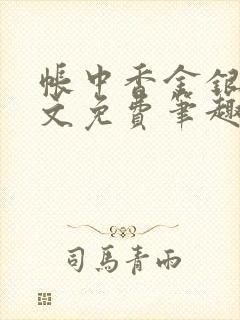 帐中香金银
文免费笔趣
司马青雨